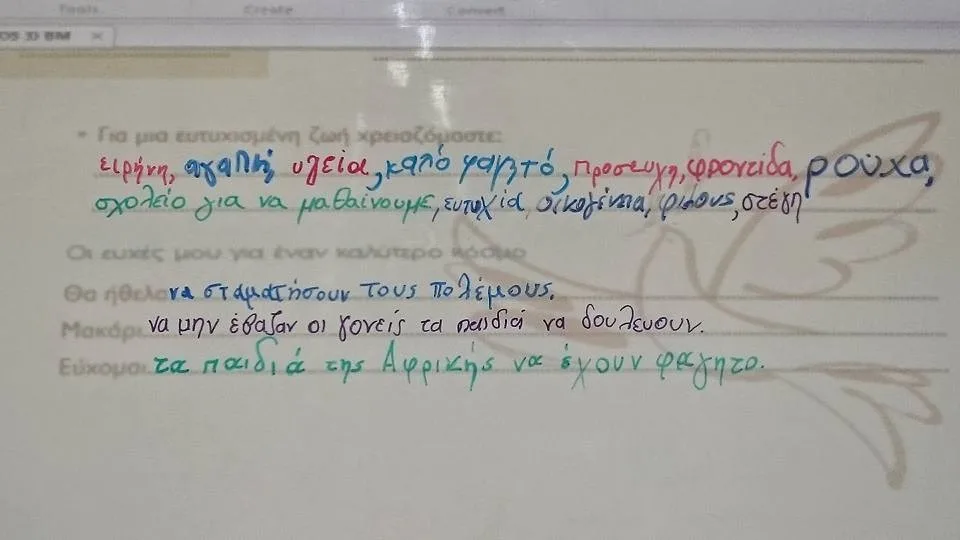 Tools Create Convert
• Για μια ευτυχισμένη ζωή χρειαζόμαστε:
ειρήνη, αγαπή, υγεία, καπό φαγητό, προσευχη, φροντίδα, ρούχα,
σχολείο για να μαθαίνουμε, ευτυχία, οικογένεια, φίλους, στέγη
Οι ευχές μου για έναν καλύτερο κόσμο
Θα ήθελα να σταματήσουν τους πολέμους.
Μακάρι να μην έβαζαν οι γονείς τα παιδιά να δουλεύουν.
Εύχομαι τα παιδιά της Αφρικής να έχουν φαγητο.